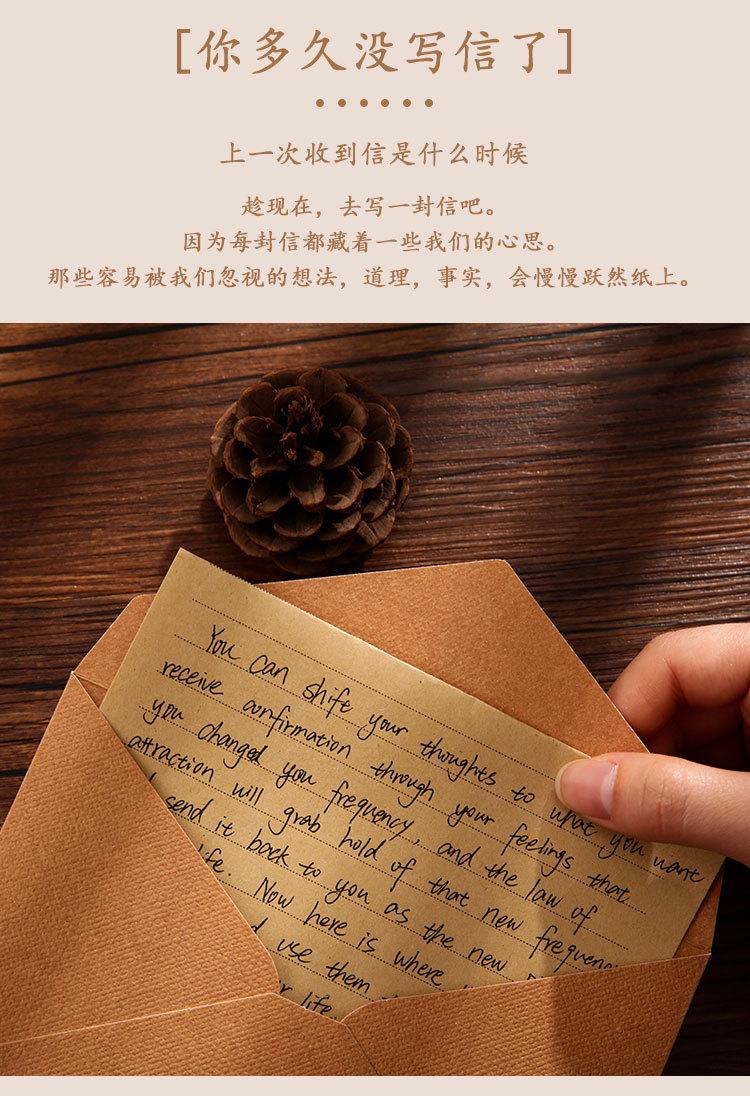 [你多久没写信了]
上一次收到信是什么时候
趁现在，去写一封信吧。
因为每封信都藏着一些我们的心思。
那些容易被我们忽视的想法，道理，事实，会慢慢跃然纸上。
You can shift your thoughts to what you want
receive confirmation through your feelings that
you changed you frequency, and the law of
attraction will grab hold of that new frequenc
send it back to you as the new
life. Now here is where
use them
life.